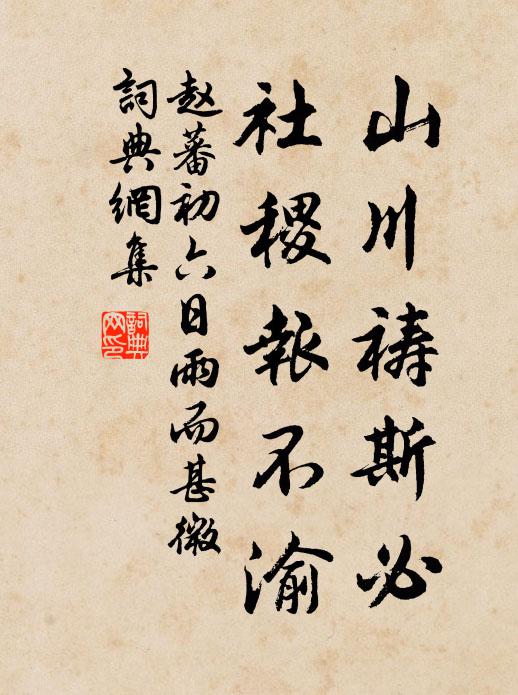 山川祷斯必
社稷報不渝
趙蕃初六日雨而甚微
詞典網集
詞典
网印